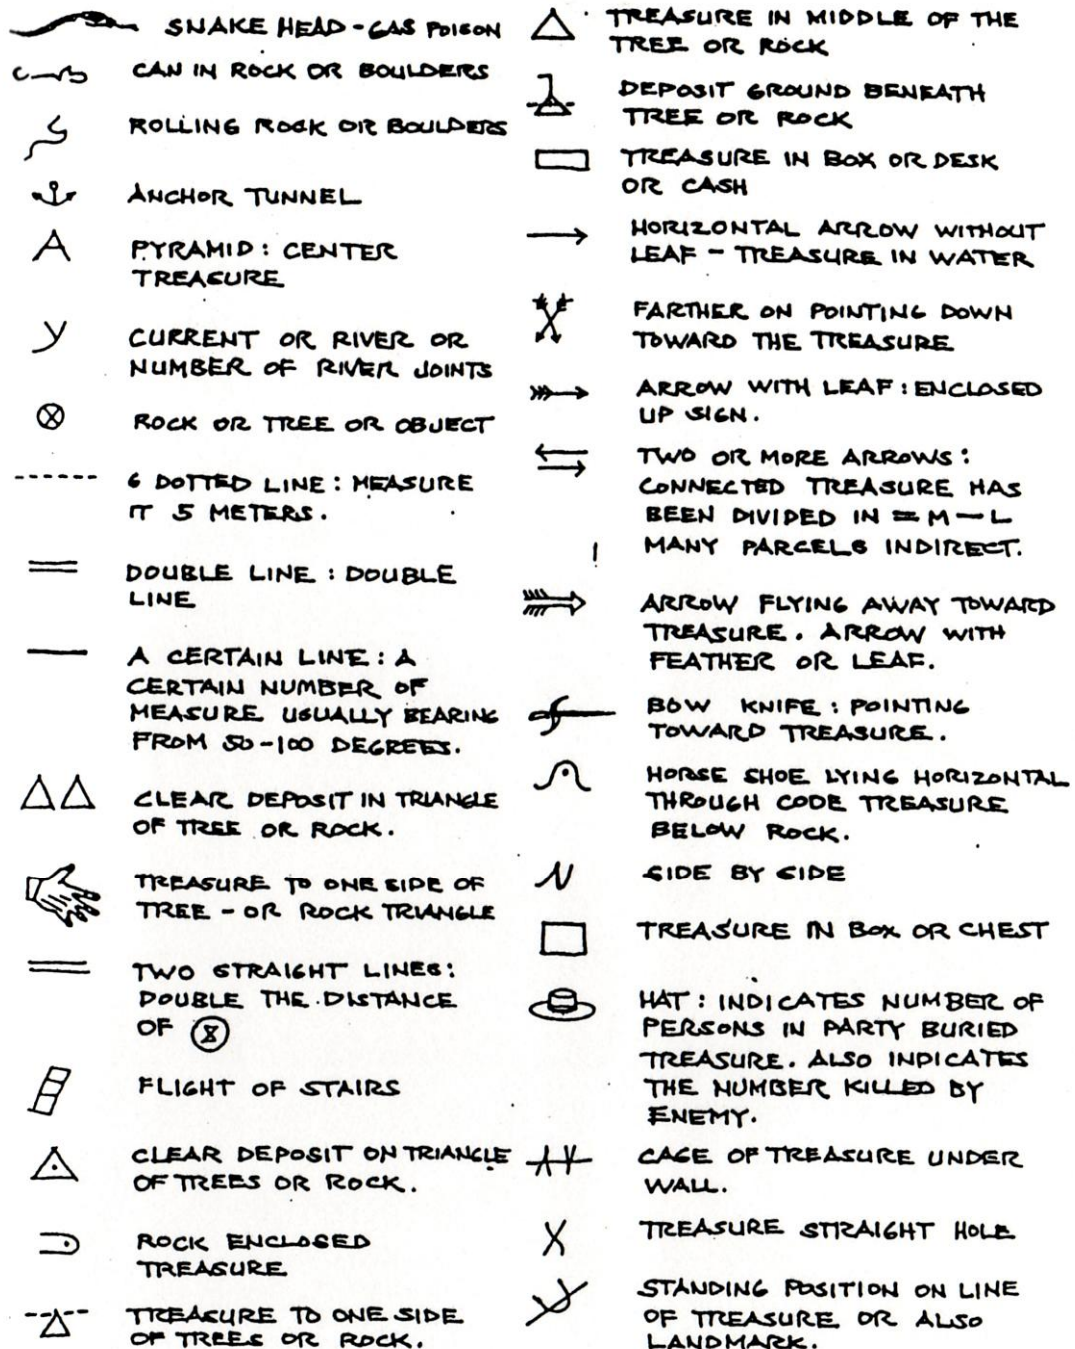 SNAKE HEAD - GAS POISON
CAN IN ROCK OR BOULDERS
ROLLING ROCK OR BOULDERS
ANCHOR TUNNEL
PYRAMID : CENTER
TREASURE
CURRENT OR RIVER OR
NUMBER OF RIVER JOINTS
ROCK OR TREE OR OBJECT
6 DOTTED LINE : MEASURE
IT 5 METERS.
DOUBLE LINE : DOUBLE
LINE
A CERTAIN LINE : A
CERTAIN NUMBER OF
MEASURE USUALLY BEARING
FROM 50-100 DEGREES.
CLEAR DEPOSIT IN TRIANGLE
OF TREE OR ROCK.
TREASURE TO ONE SIDE OF
TREE - OR ROCK TRIANGLE
TWO STRAIGHT LINES:
DOUBLE THE DISTANCE
OF
FLIGHT OF STAIRS
CLEAR DEPOSIT ON TRIANGLE
OF TREES OR ROCK.
ROCK ENCLOSED
TREASURE
TREASURE TO ONE SIDE
OF TREES OR ROCK.
TREASURE IN MIDDLE OF THE
TREE OR ROCK
DEPOSIT GROUND BENEATH
TREE OR ROCK
TREASURE IN BOX OR DESK
OR CASH
HORIZONTAL ARROW WITHOUT
LEAF - TREASURE IN WATER
FARTHER ON POINTING DOWN
TOWARD THE TREASURE
ARROW WITH LEAF : ENCLOSED
UP SIGN.
TWO OR MORE ARROWS :
CONNECTED TREASURE HAS
BEEN DIVIDED IN = M - L
MANY PARCELS INDIRECT.
ARROW FLYING AWAY TOWARD
TREASURE. ARROW WITH
FEATHER OR LEAF.
BOW KNIFE : POINTING
TOWARD TREASURE.
HORSE SHOE LYING HORIZONTAL
THROUGH CODE TREASURE
BELOW ROCK.
SIDE BY SIDE
TREASURE IN BOX OR CHEST
HAT : INDICATES NUMBER OF
PERSONS IN PARTY BURIED
TREASURE. ALSO INDICATES
THE NUMBER KILLED BY
ENEMY.
CASE OF TREASURE UNDER
WALL.
TREASURE STRAIGHT HOLE
STANDING POSITION ON LINE
OF TREASURE OR ALSO
LANDMARK.